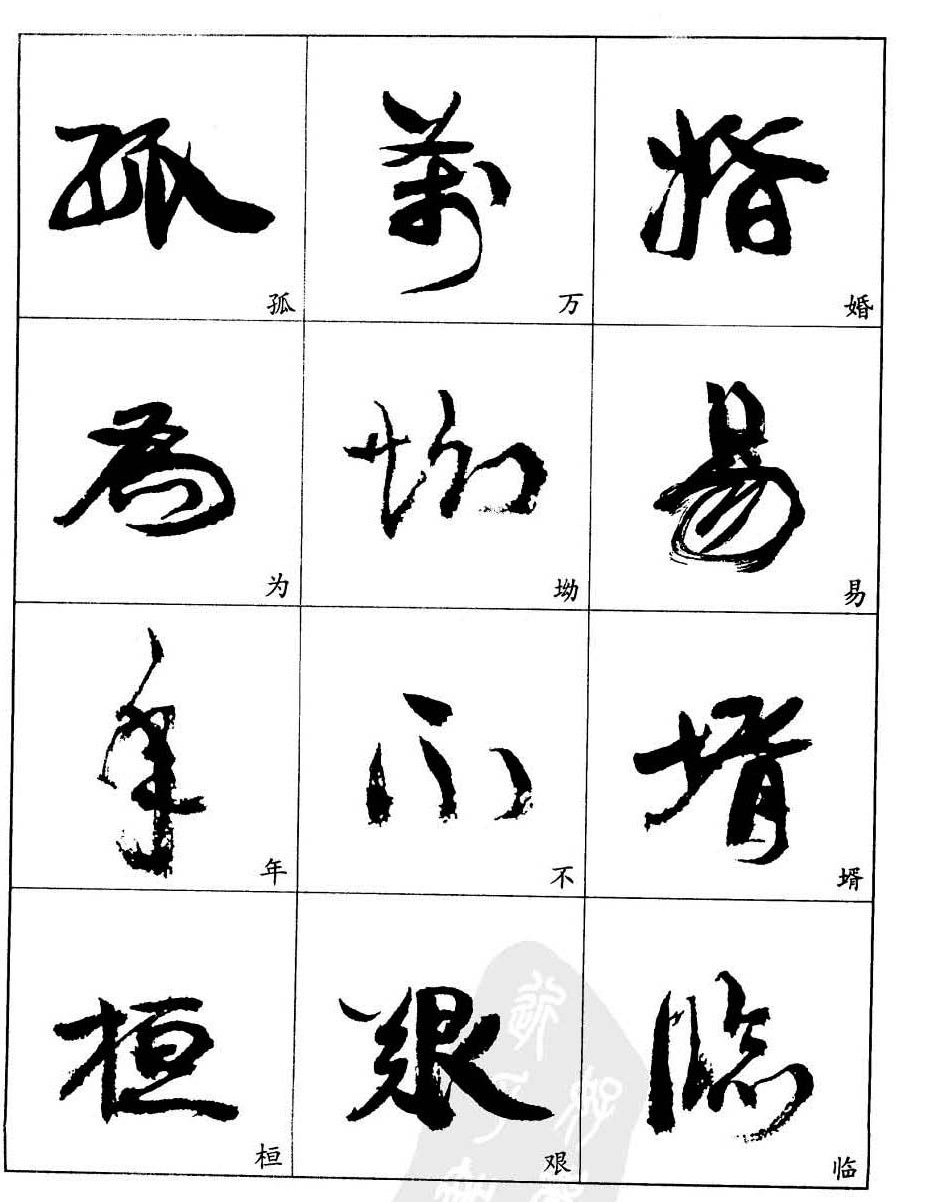 孤 万 婚
为 坳 易
年 不 壻
桓 艰 临